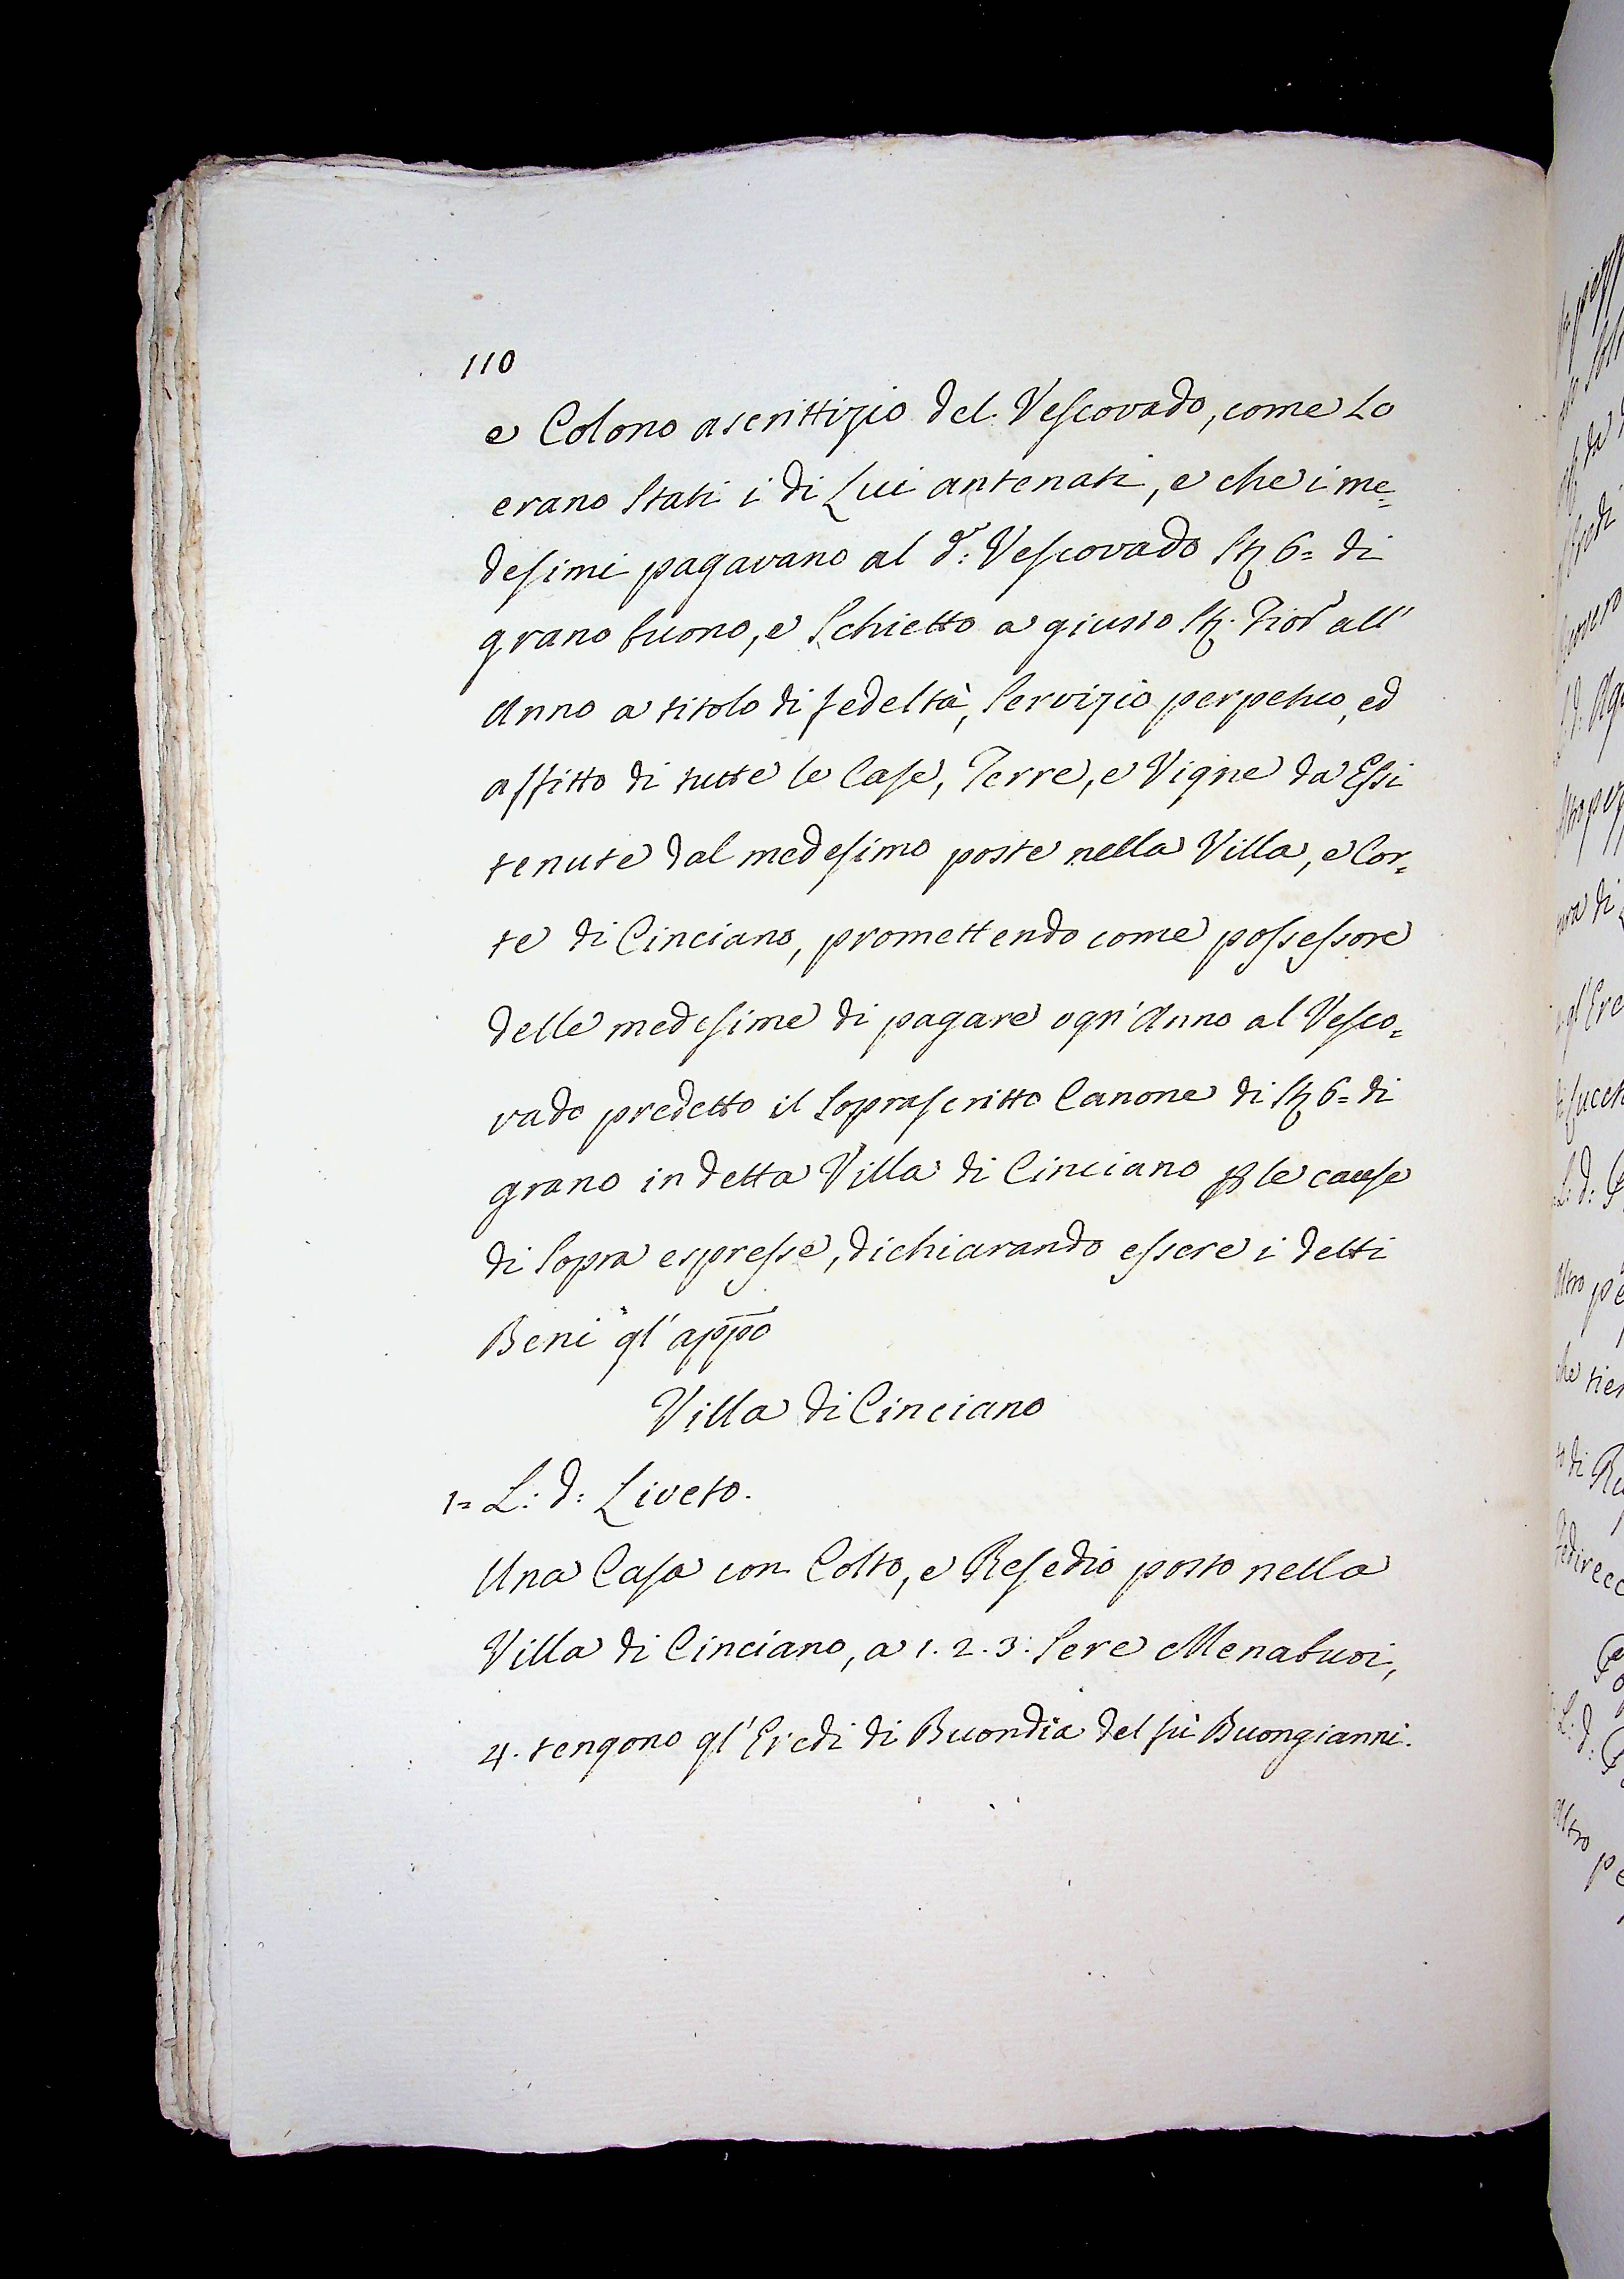 110
e Colono ascrittizio del Vescovado, come lo
erano stati i di Lui antenati, e che i me=
desimi pagavano al d.º: Vescovado St 6= di
grano buono, e Schietto a giusto St. Fior.º all'
Anno a titolo di fedeltà, Servizio perpetuo, ed
affitto di tutte le Case, Terre, e Vigne da Essi
tenute dal medesimo poste nella Villa, e Cor=
te di Cinciano, promettendo come possessore
delle medesime di pagare ogn'Anno al Vesco=
vado predetto il Soprascritto Canone di St 6= di
grano in detta Villa di Cinciano p le cause
di Sopra espresse, dichiarando essere i detti
Beni gl'appõ
Villa di Cinciano
1= L: d: Liveto.
Una Casa con Colto, e Resedio posto nella
Villa di Cinciano, a 1. 2. 3: Sere Menabuoi,
4. tengono gl'Eredi di Buondia del fù Buongianni.